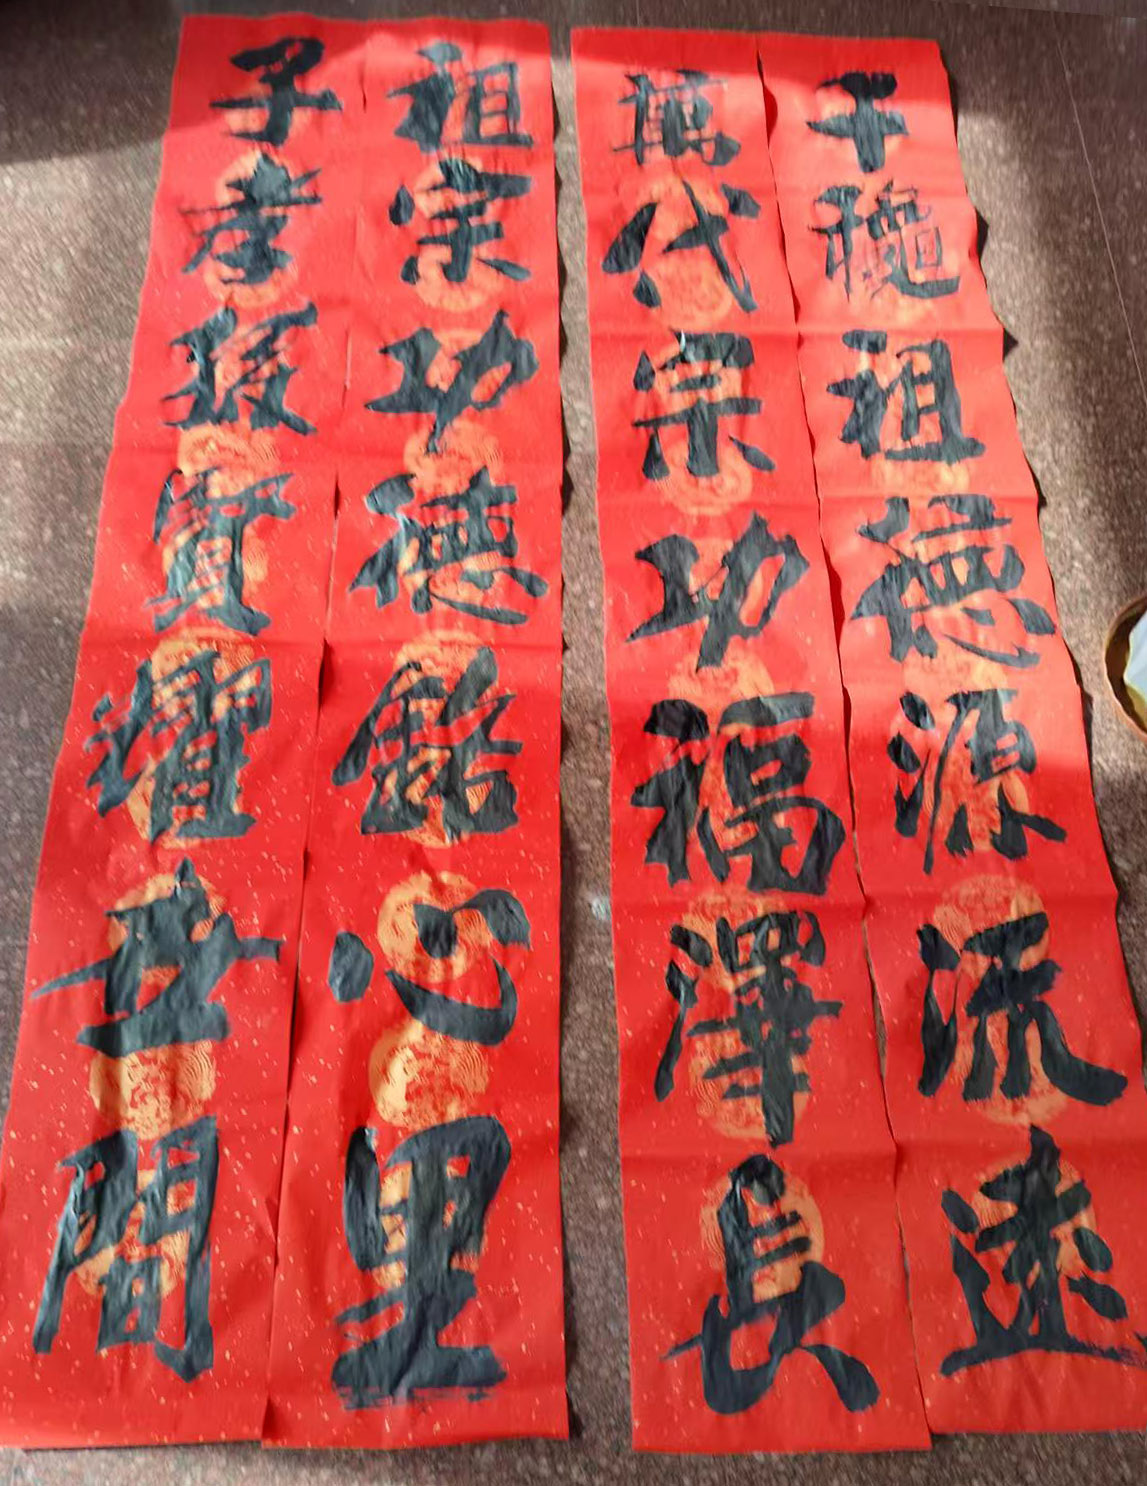 千穐祖德源流遠
萬代宗功福澤長
祖宗功德銘心里
子孝孫賢耀世間